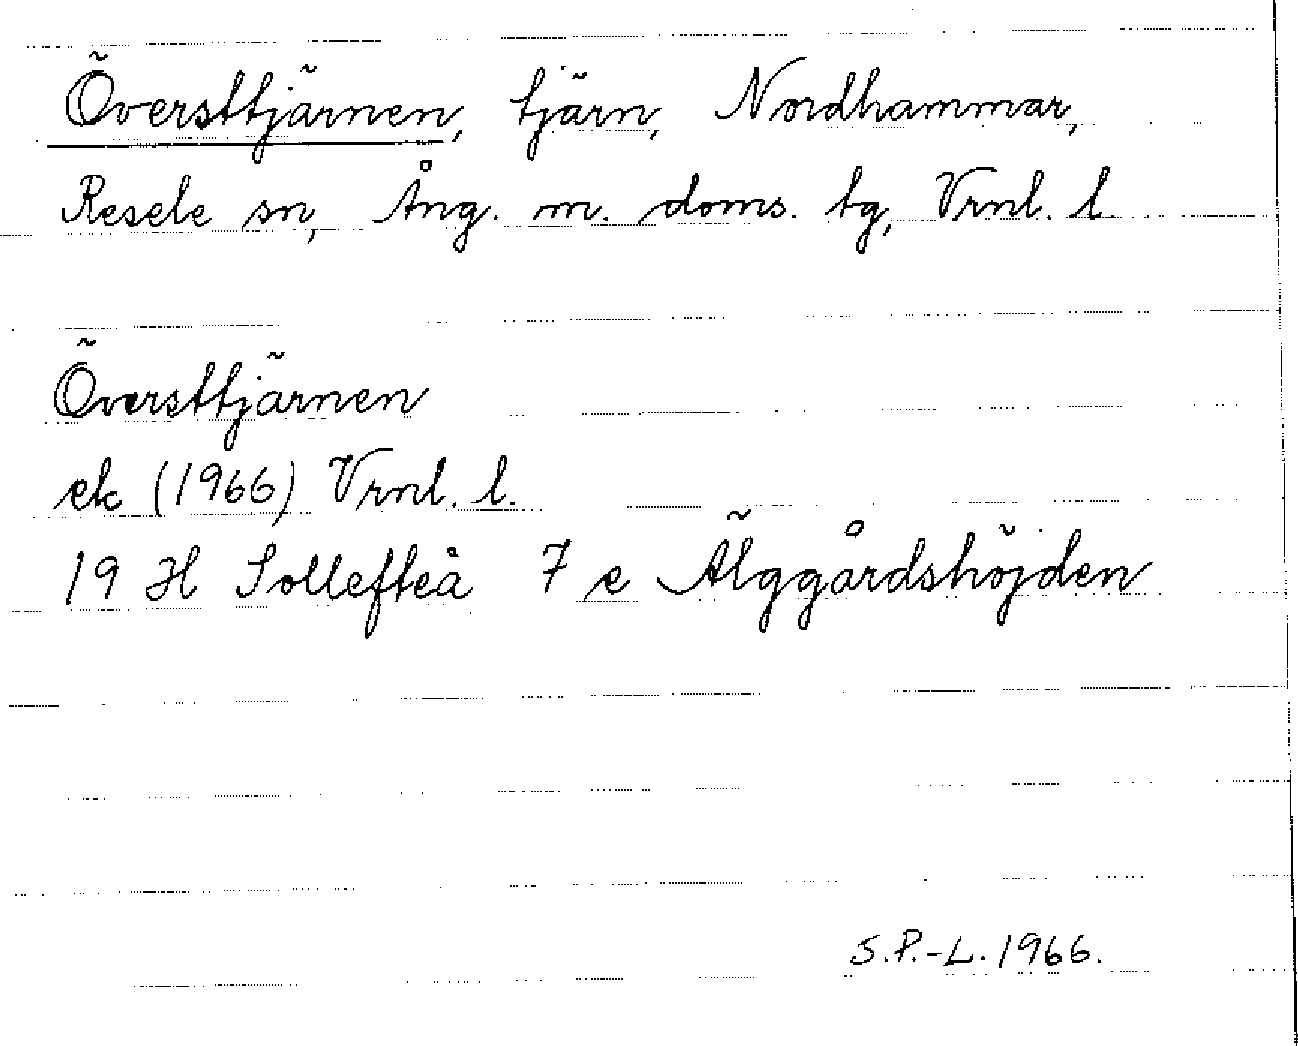 Översttjärnen, tjärn, Nordhammar,
Resele sn, Ång. m. doms. tg, Vrnl. l
Översttjärnen
ek (1966) Vrnl. l.
19 H Sollefteå 7 e Älggårdshöjden
S.P.-L. 1966.